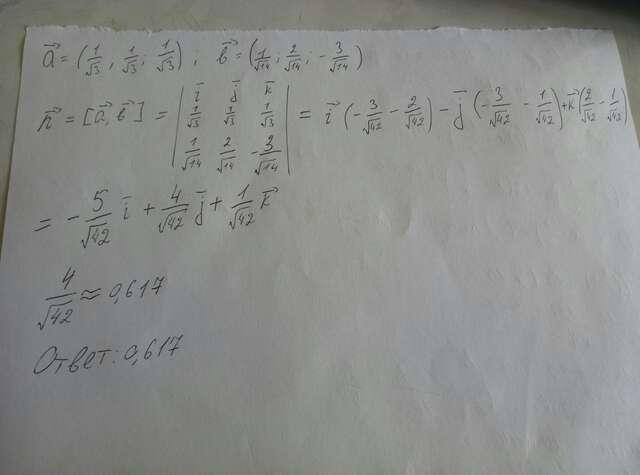 a⃗ = (1/√3; 1/√3; 1/√3); в⃗ = (1/√14; 2/√14; -3/√14)
n⃗ = [a⃗, в⃗] = | i j k ; 1/√3 1/√3 1/√3 ; 1/√14 2/√14 -3/√14 | = i⃗ (-3/√42 - 2/√42) - j (-3/√42 - 1/√42) + k⃗ (2/√42 - 1/√42)
= -5/√42 i + 4/√42 j + 1/√42 k⃗
4/√42 ≈ 0,617
Ответ: 0,617